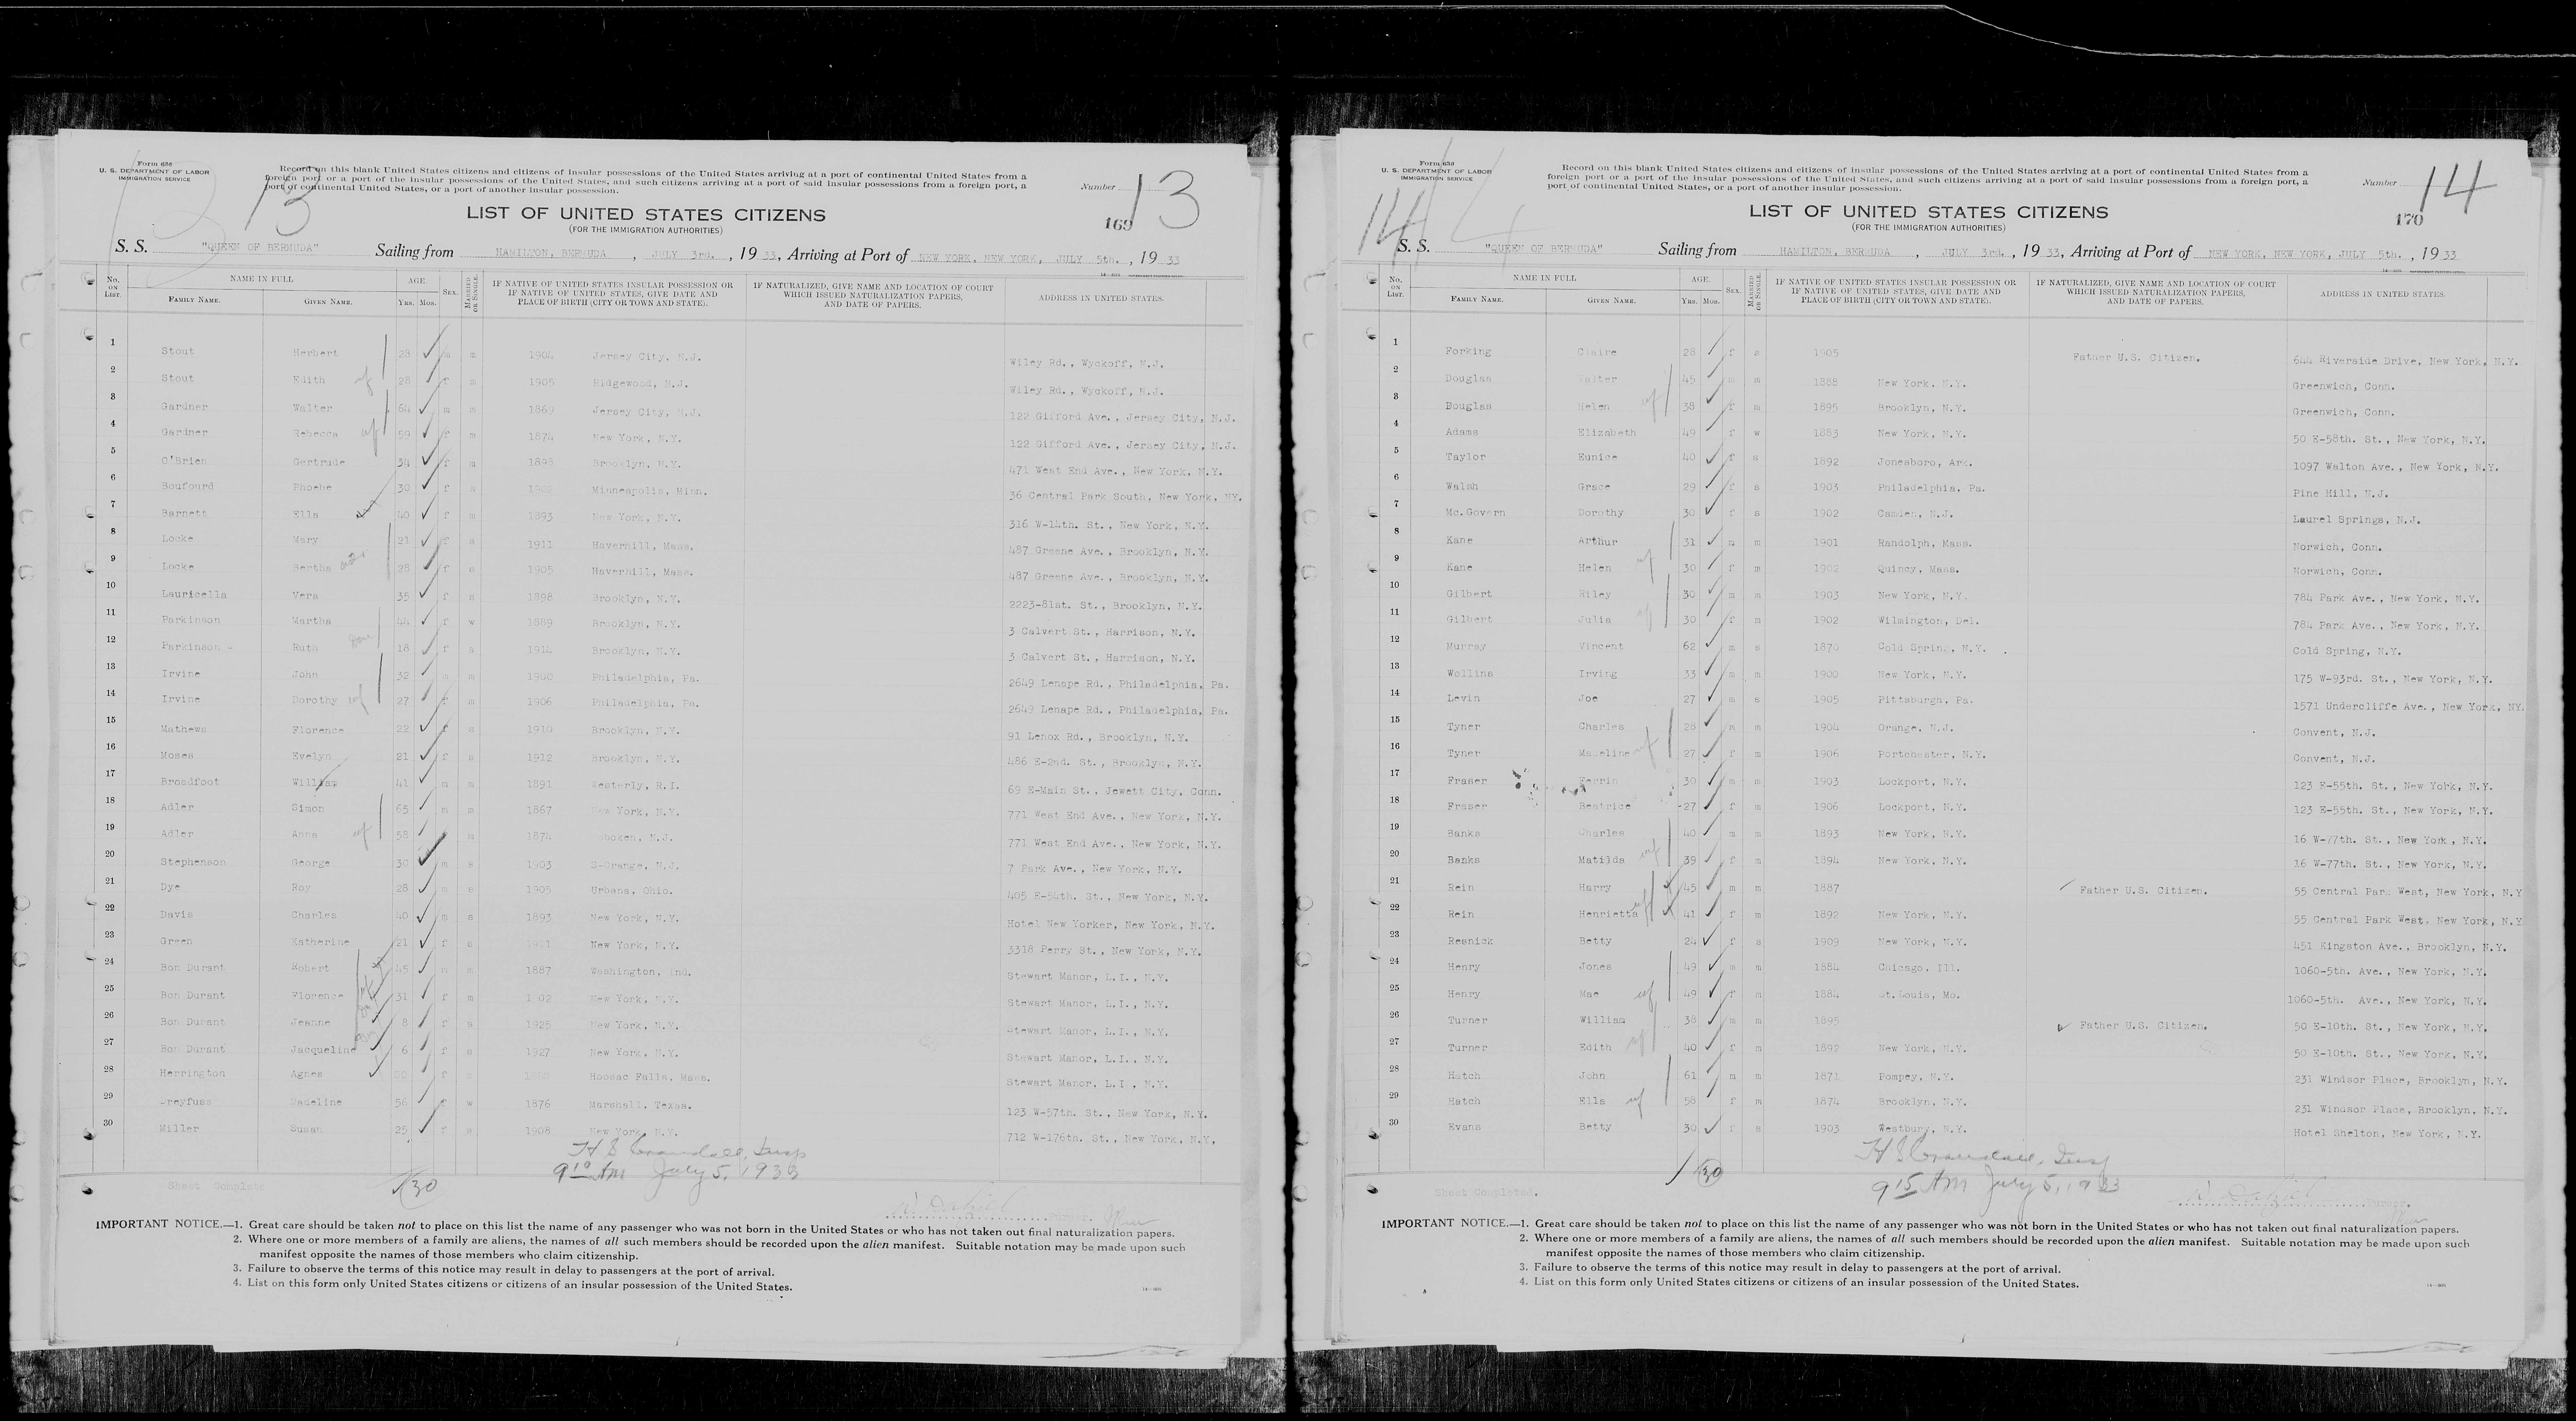 Form 630
U. S. DEPARTMENT OF LABOR
IMMIGRATION SERVICE
13
Record on this blank United States citizens and citizens of insular possessions of the United States arriving at a port of continental United States from a
foreign port or a port of the insular possessions of the United States, and such citizens arriving at a port of said insular possessions from a foreign port, a
port of continental United States, or a port of another insular possession.
Number 13
LIST OF UNITED STATES CITIZENS
(FOR THE IMMIGRATION AUTHORITIES)
169
S. S. "QUEEN OF BERMUDA" Sailing from HAMILTON, BERMUDA, JULY 3rd., 1933, Arriving at Port of NEW YORK, NEW YORK, JULY 5th., 1933
No. ON LIST. NAME IN FULL FAMILY NAME. GIVEN NAME. AGE. YRS. MOS. SEX. MARRIED OR SINGLE. IF NATIVE OF UNITED STATES INSULAR POSSESSION OR IF NATIVE OF UNITED STATES, GIVE DATE AND PLACE OF BIRTH (CITY OR TOWN AND STATE). IF NATURALIZED, GIVE NAME AND LOCATION OF COURT WHICH ISSUED NATURALIZATION PAPERS, AND DATE OF PAPERS. ADDRESS IN UNITED STATES.
1 Stout Herbert 28 m m 1904 Jersey City, N.J. Wiley Rd., Wyckoff, N.J.
2 Stout Edith wf 28 f m 1905 Ridgewood, N.J. Wiley Rd., Wyckoff, N.J.
3 Gardner Walter 64 m m 1869 Jersey City, N.J. 122 Gifford Ave., Jersey City, N.J.
4 Gardner Rebecca wf 59 f m 1874 New York, N.Y. 122 Gifford Ave., Jersey City, N.J.
5 O'Brien Gertrude 34 f m 1898 Brooklyn, N.Y. 471 West End Ave., New York, N.Y.
6 Boufourd Phoebe 30 f Minneapolis, Minn. 36 Central Park South, New York, NY.
7 Barnett Ella 40 f m 1893 New York, N.Y. 316 W-14th. St., New York, N.Y.
8 Locke Mary 21 f s 1911 Haverhill, Mass. 487 Greene Ave., Brooklyn, N.Y.
9 Locke Bertha 28 f s 1905 Haverhill, Mass. 487 Greene Ave., Brooklyn, N.Y.
10 Lauricella Vera 35 f s 1898 Brooklyn, N.Y. 2223-81st. St., Brooklyn, N.Y.
11 Parkinson Martha 44 f w 1889 Brooklyn, N.Y. 3 Calvert St., Harrison, N.Y.
12 Parkinson - Ruth 18 f s 1914 Brooklyn, N.Y. 3 Calvert St., Harrison, N.Y.
13 Irvine John 32 m m 1900 Philadelphia, Pa. 2649 Lenape Rd., Philadelphia, Pa.
14 Irvine Dorothy wf 27 f m 1906 Philadelphia, Pa. 2649 Lenape Rd., Philadelphia, Pa.
15 Mathews Florence 22 f s 1910 Brooklyn, N.Y. 91 Lenox Rd., Brooklyn, N.Y.
16 Moses Evelyn 21 f s 1912 Brooklyn, N.Y. 486 E-2nd. St., Brooklyn, N.Y.
17 Broadfoot William 41 m m 1891 Westerly, R.I. 69 E-Main St., Jewett City, Conn.
18 Adler Simon 65 m m 1867 New York, N.Y. 771 West End Ave., New York, N.Y.
19 Adler Anna wf 58 f m 1874 Hoboken, N.J. 771 West End Ave., New York, N.Y.
20 Stephenson George 30 m s 1903 S-Orange, N.J. 7 Park Ave., New York, N.Y.
21 Dye Roy 28 m s 1905 Urbana, Ohio. 405 E-54th. St., New York, N.Y.
22 Davis Charles 40 m s 1893 New York, N.Y. Hotel New Yorker, New York, N.Y.
23 Green Katherine 21 f s New York, N.Y. 3318 Perry St., New York, N.Y.
24 Bon Durant Robert 45 m m 1887 Washington, Ind. Stewart Manor, L.I., N.Y.
25 Bon Durant Florence 31 f m 1902 New York, N.Y. Stewart Manor, L.I., N.Y.
26 Bon Durant Jeanne 8 f s 1925 New York, N.Y. Stewart Manor, L.I., N.Y.
27 Bon Durant Jacqueline 6 f s 1927 New York, N.Y. Stewart Manor, L.I., N.Y.
28 Herrington Agnes f Hoosac Falls, Mass. Stewart Manor, L.I., N.Y.
29 Dreyfuss Madeline 56 f w 1876 Marshall, Texas. 123 W-57th. St., New York, N.Y.
30 Miller Susan 25 f s 1908 New York, N.Y. 712 W-176th. St., New York, N.Y.
H S Crandall, Insp
9 10 Am July 5, 1933
Sheet Complete 30
Purser.
IMPORTANT NOTICE.—1. Great care should be taken not to place on this list the name of any passenger who was not born in the United States or who has not taken out final naturalization papers.
2. Where one or more members of a family are aliens, the names of all such members should be recorded upon the alien manifest. Suitable notation may be made upon such
manifest opposite the names of those members who claim citizenship.
3. Failure to observe the terms of this notice may result in delay to passengers at the port of arrival.
4. List on this form only United States citizens or citizens of an insular possession of the United States.
Form 630
U. S. DEPARTMENT OF LABOR
IMMIGRATION SERVICE
14
Record on this blank United States citizens and citizens of insular possessions of the United States arriving at a port of continental United States from a
foreign port or a port of the insular possessions of the United States, and such citizens arriving at a port of said insular possessions from a foreign port, a
port of continental United States, or a port of another insular possession.
Number 14
LIST OF UNITED STATES CITIZENS
(FOR THE IMMIGRATION AUTHORITIES)
170
S. S. "QUEEN OF BERMUDA" Sailing from HAMILTON, BERMUDA, JULY 3rd., 1933, Arriving at Port of NEW YORK, NEW YORK, JULY 5th., 1933
No. ON LIST. NAME IN FULL FAMILY NAME. GIVEN NAME. AGE. YRS. MOS. SEX. MARRIED OR SINGLE. IF NATIVE OF UNITED STATES INSULAR POSSESSION OR IF NATIVE OF UNITED STATES, GIVE DATE AND PLACE OF BIRTH (CITY OR TOWN AND STATE). IF NATURALIZED, GIVE NAME AND LOCATION OF COURT WHICH ISSUED NATURALIZATION PAPERS, AND DATE OF PAPERS. ADDRESS IN UNITED STATES.
1 Forking Claire 28 f s 1905 Father U.S. Citizen. 644 Riverside Drive, New York, N.Y.
2 Douglas Walter 45 m m 1888 New York, N.Y. Greenwich, Conn.
3 Douglas Helen wf 38 f m 1895 Brooklyn, N.Y. Greenwich, Conn.
4 Adams Elizabeth 49 f w 1883 New York, N.Y. 50 E-58th. St., New York, N.Y.
5 Taylor Eunice 40 f s 1892 Jonesboro, Ark. 1097 Walton Ave., New York, N.Y.
6 Walsh Grace 29 f s 1903 Philadelphia, Pa. Pine Hill, N.J.
7 Mc.Govern Dorothy 30 f s 1902 Camden, N.J. Laurel Springs, N.J.
8 Kane Arthur 31 m m 1901 Randolph, Mass. Norwich, Conn.
9 Kane Helen wf 30 f m 1902 Quincy, Mass. Norwich, Conn.
10 Gilbert Riley 30 m m 1903 New York, N.Y. 784 Park Ave., New York, N.Y.
11 Gilbert Julia wf 30 f m 1902 Wilmington, Del. 784 Park Ave., New York, N.Y.
12 Murray Vincent 62 m s 1870 Cold Spring, N.Y. Cold Spring, N.Y.
13 Wollins Irving 33 m m 1900 New York, N.Y. 175 W-93rd. St., New York, N.Y.
14 Levin Joe 27 m s 1905 Pittsburgh, Pa. 1571 Undercliffe Ave., New York, NY.
15 Tyner Charles 28 m m 1904 Orange, N.J. Convent, N.J.
16 Tyner Madeline wf 27 f m 1906 Portchester, N.Y. Convent, N.J.
17 Fraser Ferrin 30 m m 1903 Lockport, N.Y. 123 E-55th. St., New York, N.Y.
18 Fraser Beatrice 27 f m 1906 Lockport, N.Y. 123 E-55th. St., New York, N.Y.
19 Banks Charles 40 m m 1893 New York, N.Y. 16 W-77th. St., New York, N.Y.
20 Banks Matilda wf 39 f m 1894 New York, N.Y. 16 W-77th. St., New York, N.Y.
21 Rein Harry 45 m m 1887 Father U.S. Citizen. 55 Central Park West, New York, N.Y
22 Rein Henrietta wf 41 f m 1892 New York, N.Y. 55 Central Park West, New York, N.Y
23 Resnick Betty 24 f s 1909 New York, N.Y. 451 Kingston Ave., Brooklyn, N.Y.
24 Henry Jones 49 m m 1884 Chicago, Ill. 1060-5th. Ave., New York, N.Y.
25 Henry Mae wf 49 f m 1884 St. Louis, Mo. 1060-5th. Ave., New York, N.Y.
26 Turner William 38 m m 1895 Father U.S. Citizen. 50 E-10th. St., New York, N.Y.
27 Turner Edith wf 40 f m 1892 New York, N.Y. 50 E-10th. St., New York, N.Y.
28 Hatch John 61 m m 1871 Pompey, N.Y. 231 Windsor Place, Brooklyn, N.Y.
29 Hatch Ella wf 58 f m 1874 Brooklyn, N.Y. 231 Windsor Place, Brooklyn, N.Y.
30 Evans Betty 30 f s 1903 Westbury, N.Y. Hotel Shelton, New York, N.Y.
H S Crandall, Insp
9 15 Am July 5, 1933
Sheet Completed. 30
Purser.
IMPORTANT NOTICE.—1. Great care should be taken not to place on this list the name of any passenger who was not born in the United States or who has not taken out final naturalization papers.
2. Where one or more members of a family are aliens, the names of all such members should be recorded upon the alien manifest. Suitable notation may be made upon such
manifest opposite the names of those members who claim citizenship.
3. Failure to observe the terms of this notice may result in delay to passengers at the port of arrival.
4. List on this form only United States citizens or citizens of an insular possession of the United States.